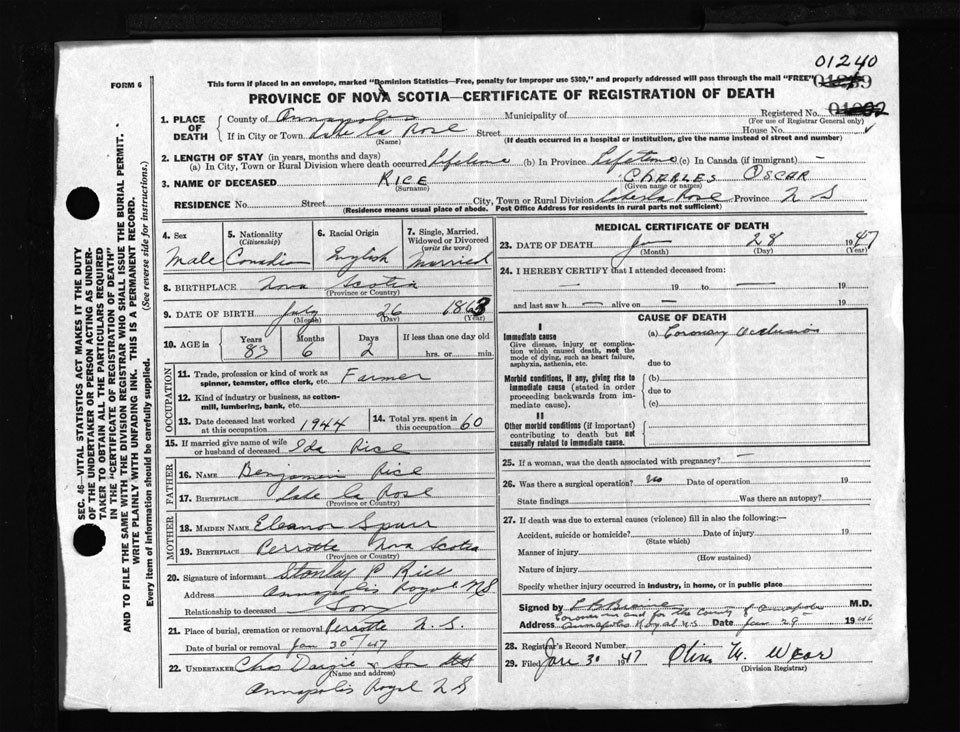 01240
FORM 6
This form if placed in an envelope, marked "Dominion Statistics—Free, penalty for improper use $300," and properly addressed will pass through the mail "FREE"
PROVINCE OF NOVA SCOTIA—CERTIFICATE OF REGISTRATION OF DEATH
SEC. 46—VITAL STATISTICS ACT MAKES IT THE DUTY
OF THE UNDERTAKER OR PERSON ACTING AS UNDER-
TAKER TO OBTAIN ALL THE PARTICULARS REQUIRED
IN THE "CERTIFICATE OF REGISTRATION OF DEATH"
AND TO FILE THE SAME WITH THE DIVISION REGISTRAR WHO SHALL ISSUE THE BURIAL PERMIT.
WRITE PLAINLY WITH UNFADING INK. THIS IS A PERMANENT RECORD.
Every item of information should be carefully supplied. (See reverse side for instructions.)
1. PLACE OF DEATH
County of Annapolis Municipality of Registered No.
(For use of Registrar General only)
If in City or Town Lake La Rose Street House No.
(Name) (If death occurred in a hospital or institution, give the name instead of street and number)
2. LENGTH OF STAY (in years, months and days)
(a) In City, Town or Rural Division where death occurred Lifetime (b) In Province Lifetime (c) In Canada (if immigrant) —
3. NAME OF DECEASED RICE CHARLES OSCAR
(Surname) (Given name or names)
RESIDENCE No. Street City, Town or Rural Division Lake La Rose Province N S
(Residence means usual place of abode. Post Office Address for residents in rural parts not sufficient)
4. Sex
Male
5. Nationality
(Citizenship)
Canadian
6. Racial Origin
English
7. Single, Married, Widowed or Divorced
(write the word)
Married
8. BIRTHPLACE Nova Scotia
(Province or Country)
9. DATE OF BIRTH July 26 1863
(Month) (Day) (Year)
10. AGE in Years Months Days If less than one day old
83 6 2 hrs. or min.
OCCUPATION
11. Trade, profession or kind of work as
spinner, teamster, office clerk, etc. Farmer
12. Kind of industry or business, as cotton-
mill, lumbering, bank, etc.
13. Date deceased last worked
at this occupation 1944
14. Total yrs. spent in
this occupation 60
15. If married give name of wife
or husband of deceased Ida Rice
FATHER
16. NAME Benjamin Rice
17. BIRTHPLACE Lake La Rose
(Province or Country)
MOTHER
18. MAIDEN NAME Eleanor Spurr
19. BIRTHPLACE Perrotte Nova Scotia
(Province or Country)
20. Signature of informant Stanley P Rice
Address Annapolis Royal NS
Relationship to deceased Son
21. Place of burial, cremation or removal Perrotte N. S.
Date of burial or removal Jan 30/47
22. UNDERTAKER Chas Dargie & Son
(Name and address)
Annapolis Royal N S
MEDICAL CERTIFICATE OF DEATH
23. DATE OF DEATH Jan 28 1947
(Month) (Day) (Year)
24. I HEREBY CERTIFY that I attended deceased from:
— 19 to — 19
and last saw h — alive on — 19
CAUSE OF DEATH
I
Immediate cause
Give disease, injury or complica-
tion which caused death, not the
mode of dying, such as heart failure,
asphyxia, asthenia, etc.
(a) Coronary Occlusion
due to
Morbid conditions, if any, giving rise to
immediate cause (stated in order
proceeding backwards from im-
mediate cause).
(b)
due to
(c)
II
Other morbid conditions (if important)
contributing to death but not
causally related to immediate cause.
25. If a woman, was the death associated with pregnancy? —
26. Was there a surgical operation? No Date of operation 19
State findings Was there an autopsy?
27. If death was due to external causes (violence) fill in also the following:—
Accident, suicide or homicide? Date of injury 19
(State which)
Manner of injury
(How sustained)
Nature of injury
Specify whether injury occurred in industry, in home, or in public place
Signed by M.D.
Coroner in and for the County of Annapolis
Address Annapolis Royal N.S Date Jan 29 19
28. Registrar's Record Number
29. Filed Jan 30 1947
(Division Registrar)